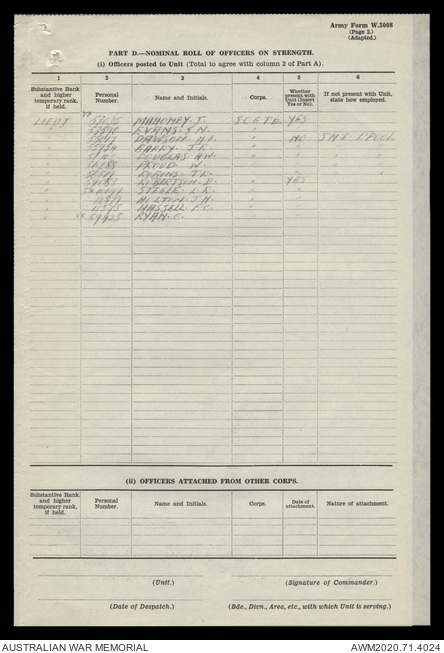 Army Form W.3008
(Page 2.)
(Adapted.)
PART D.—NOMINAL ROLL OF OFFICERS ON STRENGTH.
(i) Officers posted to Unit (Total to agree with column 2 of Part A).
1 2 3 4 5 6
Substantive Rank and higher temporary rank, if held. Personal Number. Name and Initials. Corps. Whether present with Unit (Insert Yes or No). If not present with Unit, state how employed.
LIEUT MAHONEY. T. SCETD YES
" EVANS. S.N. "
" DAWSON " NO SME L'POOL
" J.R. " " " "
" DOUGLAS H.W. " " " "
" PROUD W. " " " "
" J.R. " " " "
" ROBERTSON. D. " YES
" STEELE. L.R. " "
" J.H. " "
" HASSELL F.C. " "
" RYAN. C. " "
(ii) OFFICERS ATTACHED FROM OTHER CORPS.
Substantive Rank, and higher temporary rank, if held. Personal Number. Name and Initials. Corps. Date of attachment. Nature of attachment.
(Unit.) (Signature of Commander.)
(Date of Despatch.) (Bde., Divn., Area, etc., with which Unit is serving.)
AUSTRALIAN WAR MEMORIAL AWM2020.71.4024